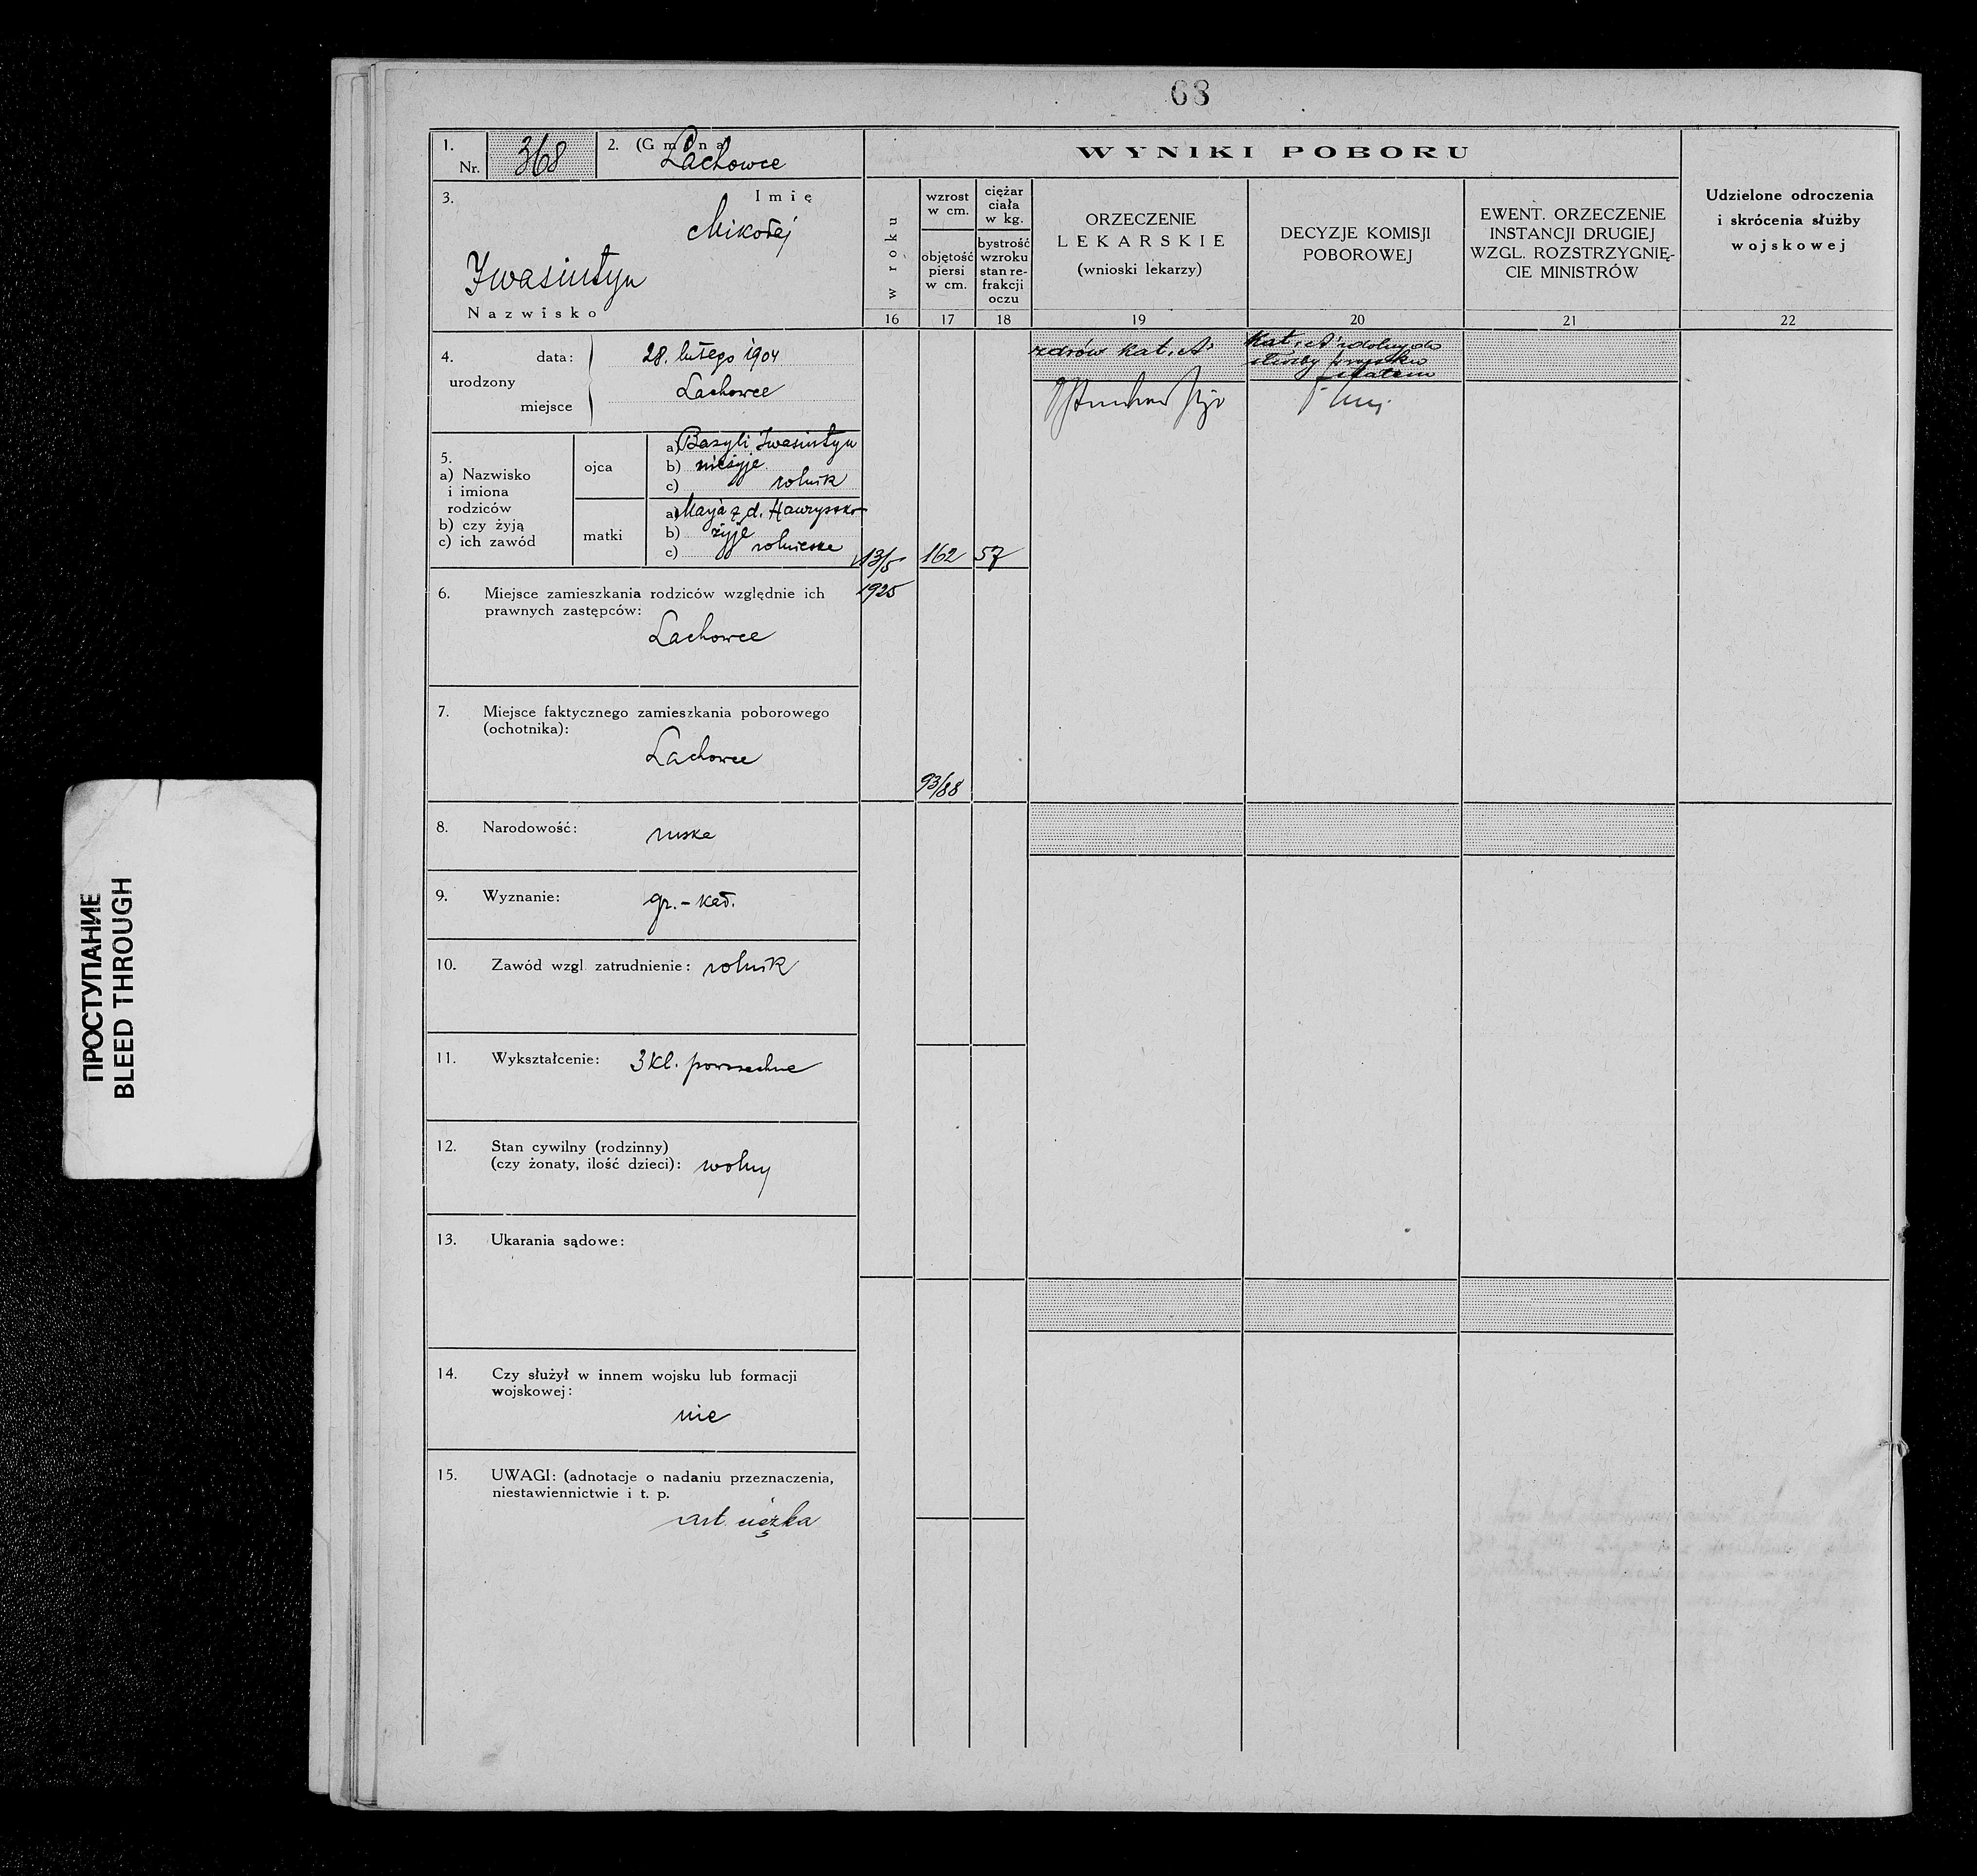 68
1. Nr. 368
2. (Gmina) Lachowce
3. Imię
Mikołaj
Iwasiutyn
Nazwisko
4. urodzony
data: 28. lutego 1904
miejsce Lachowce
5.
a) Nazwisko
i imiona
rodziców
b) czy żyją
c) ich zawód
ojca
a) Bazyli Iwasiutyn
b) nieżyje
c) rolnik
matki
a) Marja z d.
b) żyje
c) rolniczka
6. Miejsce zamieszkania rodziców względnie ich
prawnych zastępców:
Lachowce
7. Miejsce faktycznego zamieszkania poborowego
(ochotnika):
Lachowce
8. Narodowość: ruska
9. Wyznanie: gr.-kat.
10. Zawód wzgl. zatrudnienie: rolnik
11. Wykształcenie: 3 kl. powszechne
12. Stan cywilny (rodzinny)
(czy żonaty, ilość dzieci): wolny
13. Ukarania sądowe:
14. Czy służył w innem wojsku lub formacji
wojskowej:
nie
15. UWAGI: (adnotacje o nadaniu przeznaczenia,
niestawiennictwie i t. p.
art. ciężka
WYNIKI POBORU
w roku
16
wzrost
w cm.
objętość
piersi
w cm.
17
ciężar
ciała
w kg.
bystrość
wzroku
stan re-
frakcji
oczu
18
ORZECZENIE
LEKARSKIE
(wnioski lekarzy)
19
DECYZJE KOMISJI
POBOROWEJ
20
EWENT. ORZECZENIE
INSTANCJI DRUGIEJ
WZGL. ROZSTRZYGNIĘ-
CIE MINISTRÓW
21
Udzielone odroczenia
i skrócenia służby
wojskowej
22
13/5
1925
162
57
93/88
zdrów kat. A
Kat. A zdolny do
służby
ПРОСТУПАНИЕ
BLEED THROUGH